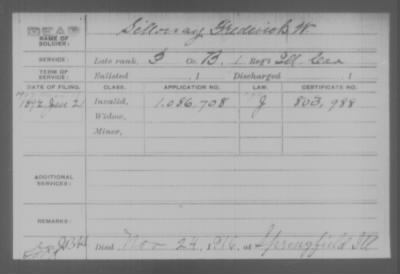 DEAD
NAME OF SOLDIER: Silloway, Frederick W
SERVICE: Late rank, Co. B, 1 Reg't Ill. Cav
TERM OF SERVICE: Enlisted , 1 Discharged , 1
DATE OF FILING. CLASS. APPLICATION NO. LAW. CERTIFICATE NO.
1892 Jan 21 Invalid, 1.086.708 J 803,988
Widow,
Minor,
ADDITIONAL SERVICES:
REMARKS:
Died Nov 24, 1916, at Springfield Ill